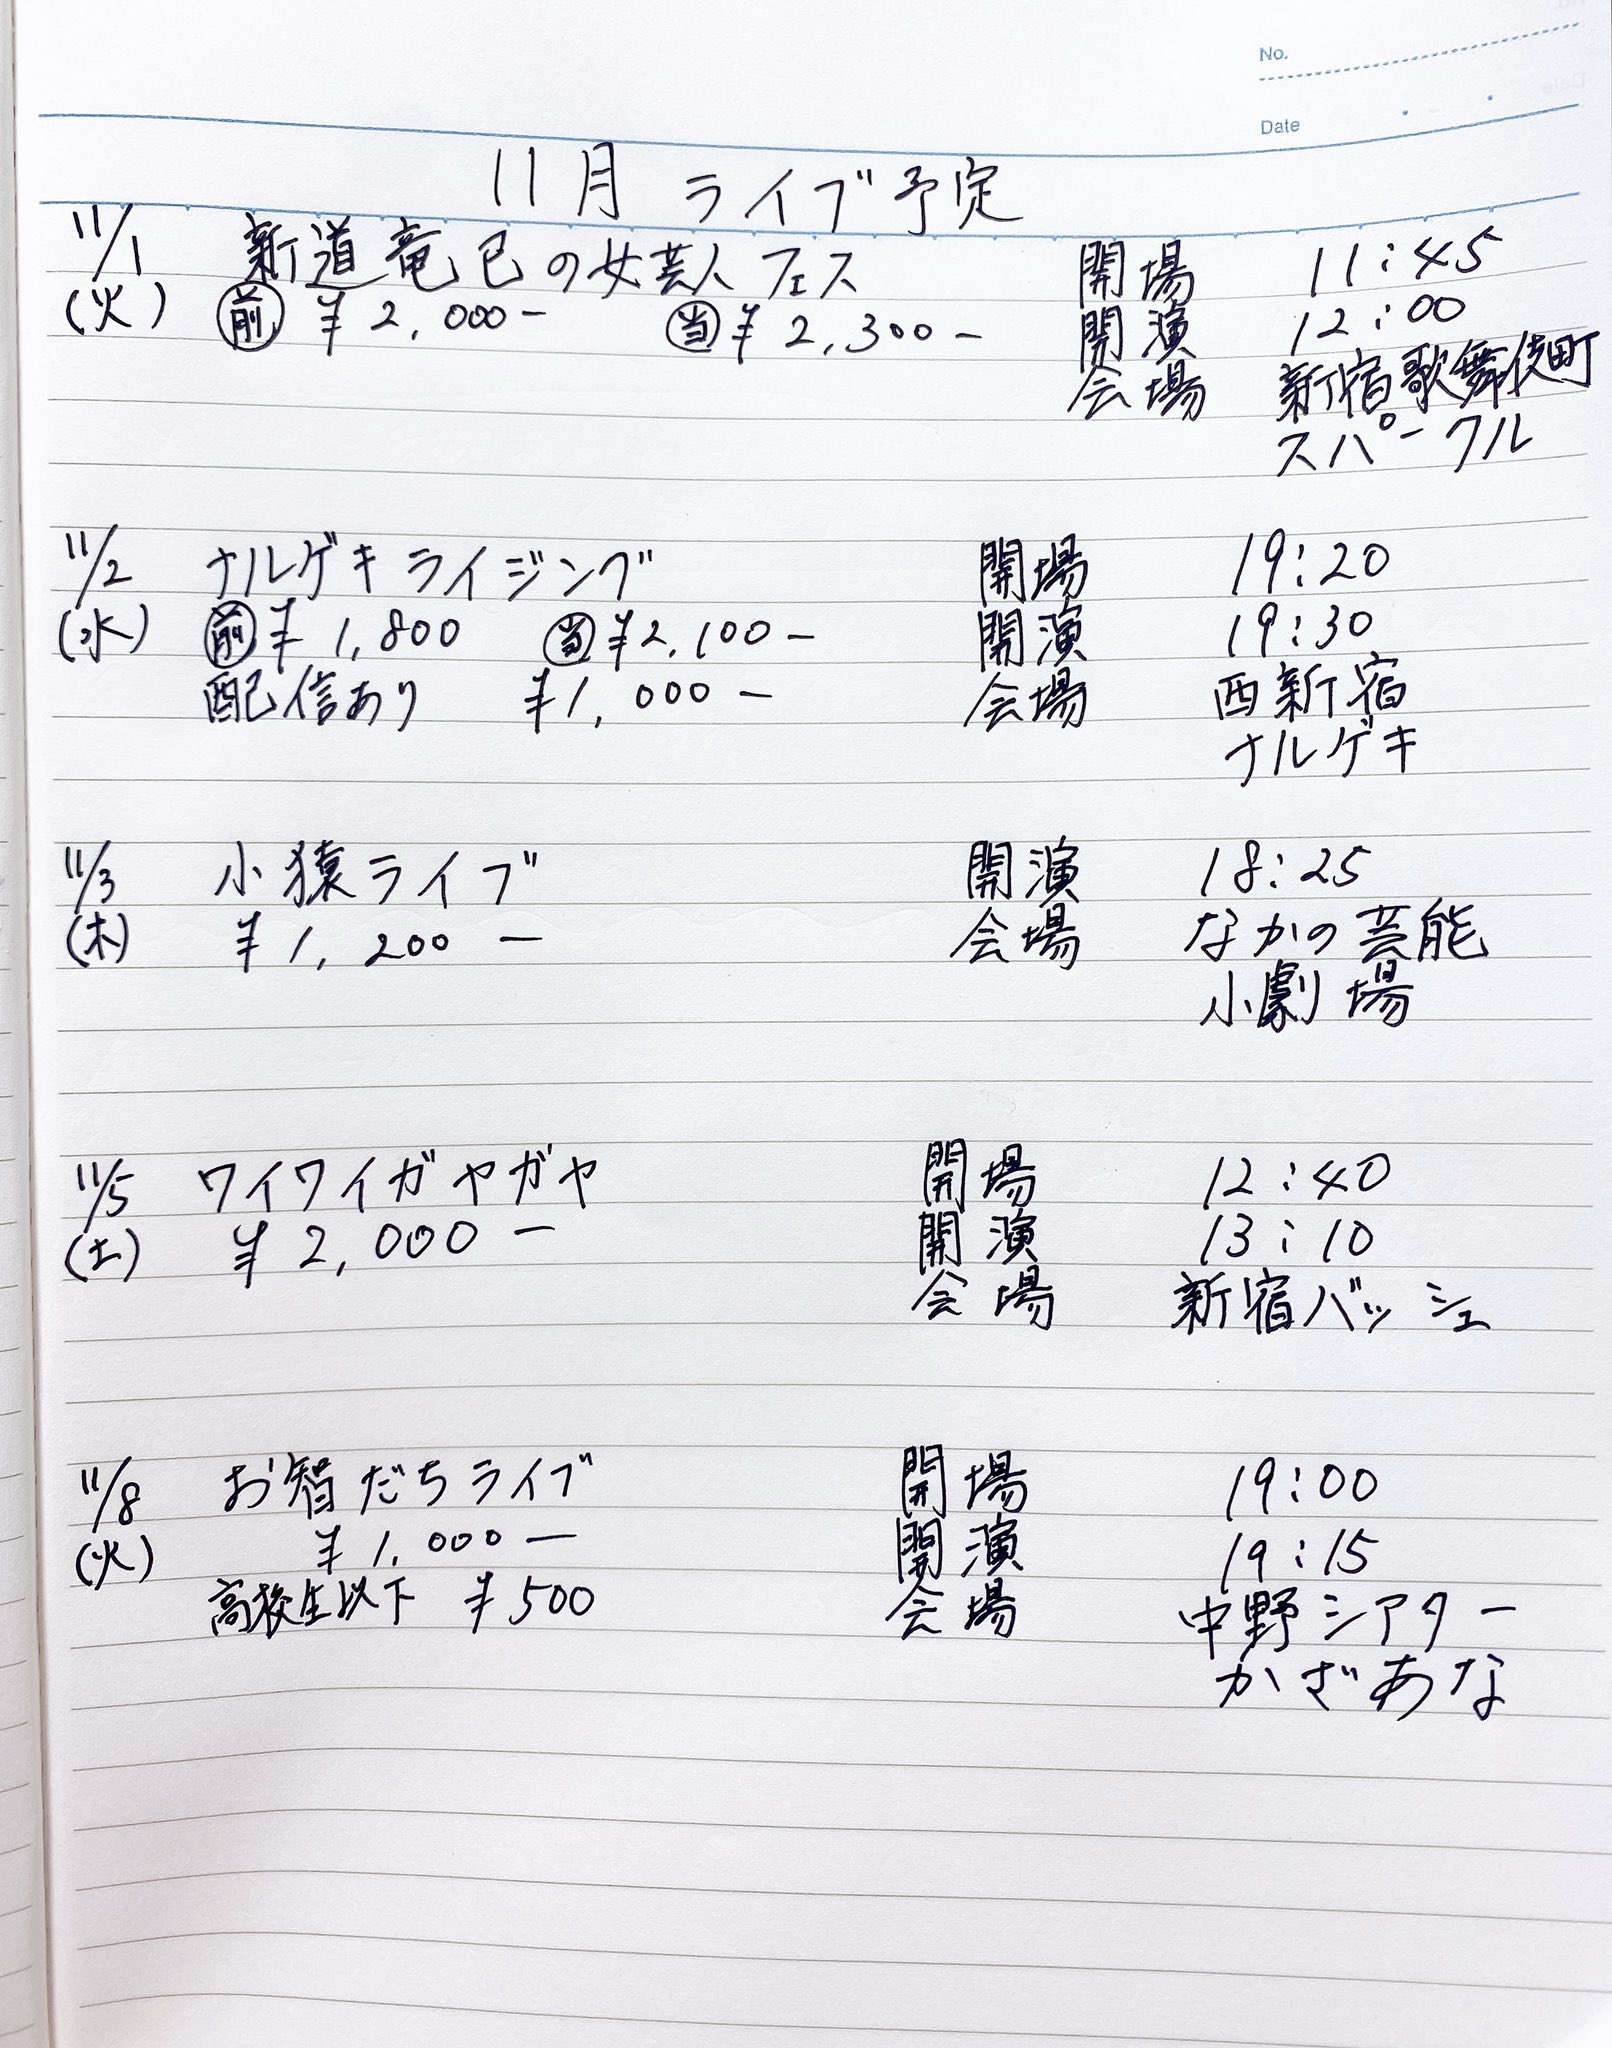 No.
Date
11月 ライブ予定
11/1 新道竜巳の女芸人フェス 開場 11:45
(火) 前 ¥2,000- 当 ¥2,300- 開演 12:00
会場 新宿歌舞伎町
スパークル
11/2 ナルゲキライジング 開場 19:20
(水) 前 ¥1,800 当 ¥2,100- 開演 19:30
配信あり ¥1,000- 会場 西新宿
ナルゲキ
11/3 小猿ライブ 開演 18:25
(木) ¥1,200- 会場 なかの芸能
小劇場
11/5 ワイワイガヤガヤ 開場 12:40
(土) ¥2,000- 開演 13:10
会場 新宿バッシュ
11/8 お智だちライブ 開場 19:00
(火) ¥1,000- 開演 19:15
高校生以下 ¥500 会場 中野シアター
かざあな